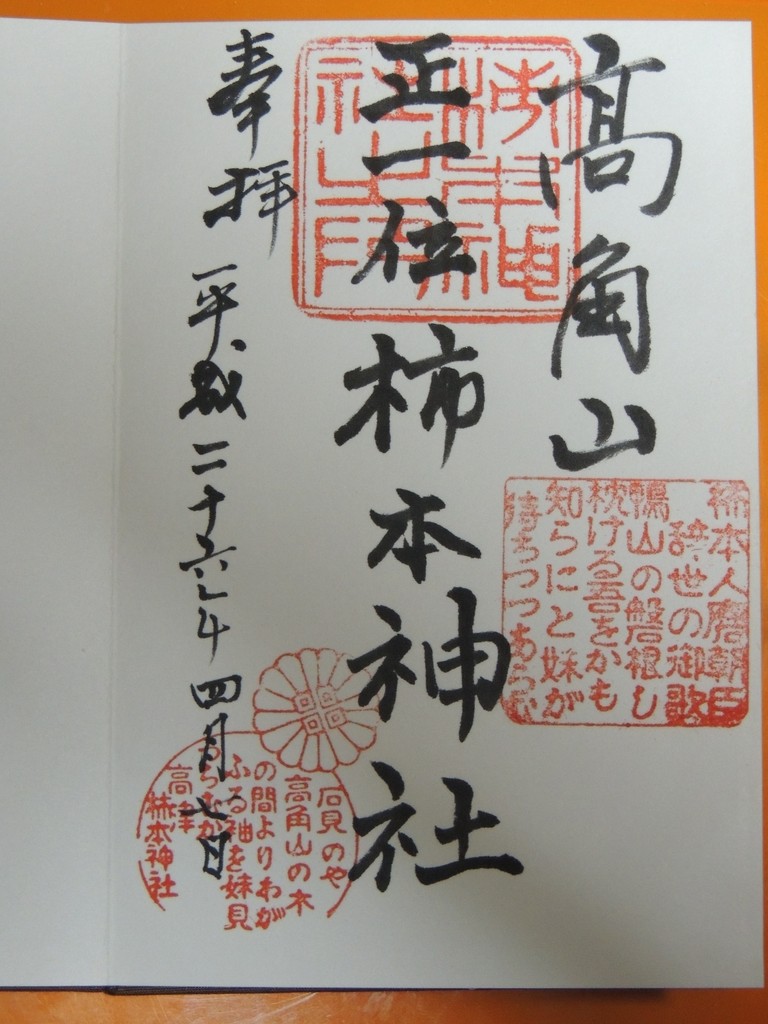 高角山
正一位 柿本神社
奉拝 平成二十六年 四月七日
柿本神社之印
柿本人麿朝臣
辞世の御歌
鴨山の磐根し
枕ける吾をかも
知らにと妹が
待ちつつあらむ
石見のや
高角山の木
の間よりわが
ふる袖を妹見
つらむか
高津
柿本神社